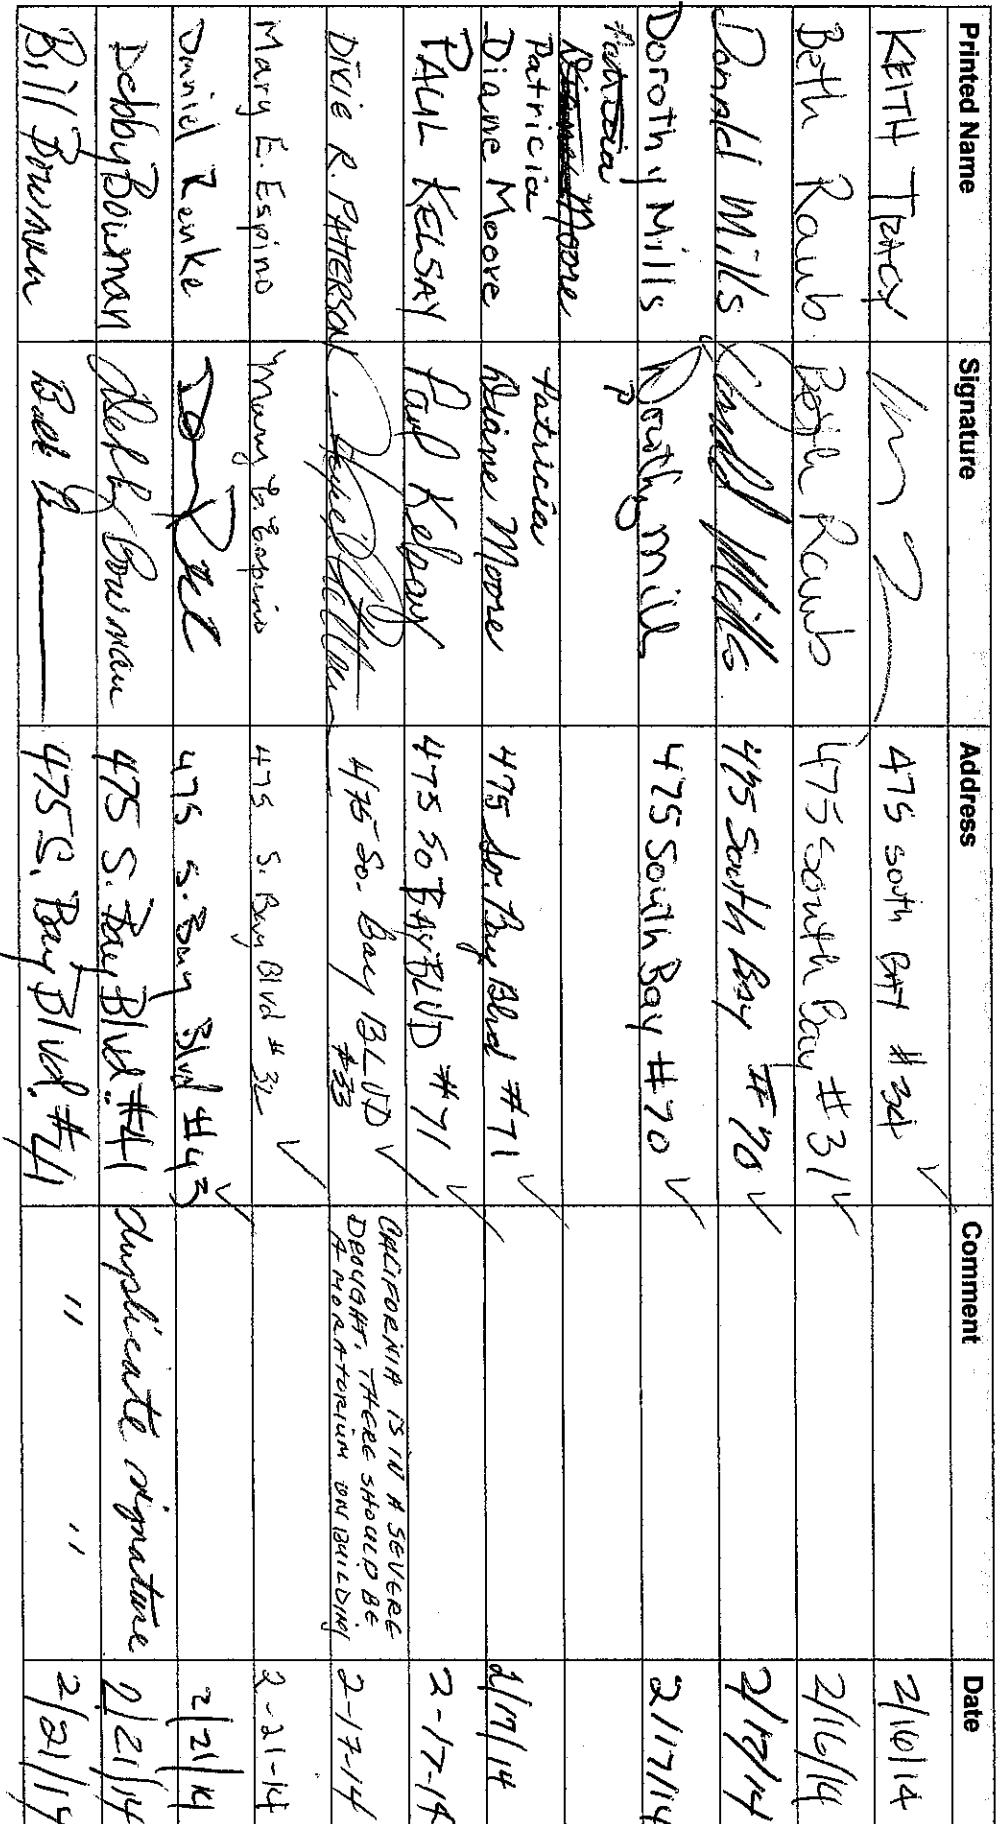 Printed Name Signature Address Comment Date
KEITH TRACY 475 South BAY #34 ✓ 2/16/14
Beth Raub Beth Raub 475 South Bay #31 ✓ 2/16/14
Donald Mills Donald Mills 475 South Bay #70 ✓ 2/17/14
Dorothy Mills Dorothy Mills 475 South Bay #70 ✓ 2/17/14
Patricia
Diane Moore P
Patricia Patricia
Diane Moore Diane Moore 475 So. Bay Blvd #71 ✓ 2/17/14
PAUL KELSAY Paul Kelsay 475 SO BAY BLVD #71 ✓ 2-17-14
DIXIE R. PATTERSON 475 So. Bay BLVD #33 ✓ CALIFORNIA IS IN A SEVERE
DROUGHT, THERE SHOULD BE
A MORATORIUM ON BUILDING 2-17-14
Mary E. Espino Mary E. Espino 475 S. Bay Blvd #32 ✓ 2-21-14
Daniel Renke 475 S. Bay Blvd #43 ✓ 2/21/14
Debby Bowman Debby Bowman 475 S. Bay Blvd. #41 duplicate signature 2/21/14
Bill Bowman 475 S. Bay Blvd. #41 " " 2/21/14